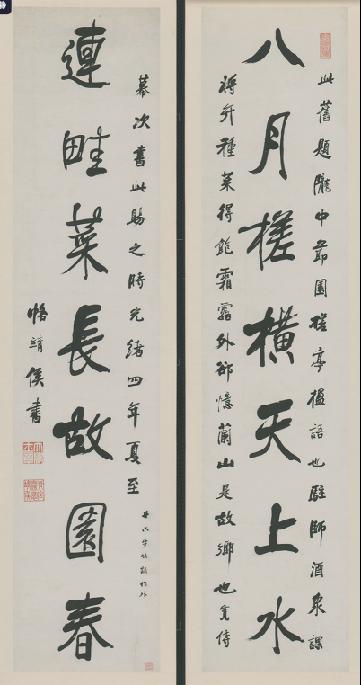 此舊題隴中節園槎亭楹語也駐師酒泉課
八月槎橫天上水
將弁種菜得飽霜露外卻憶蘭山是故鄉也侍
幕次書此賜之時光緒四年夏至
連畦菜長故園春
恪靖侯書